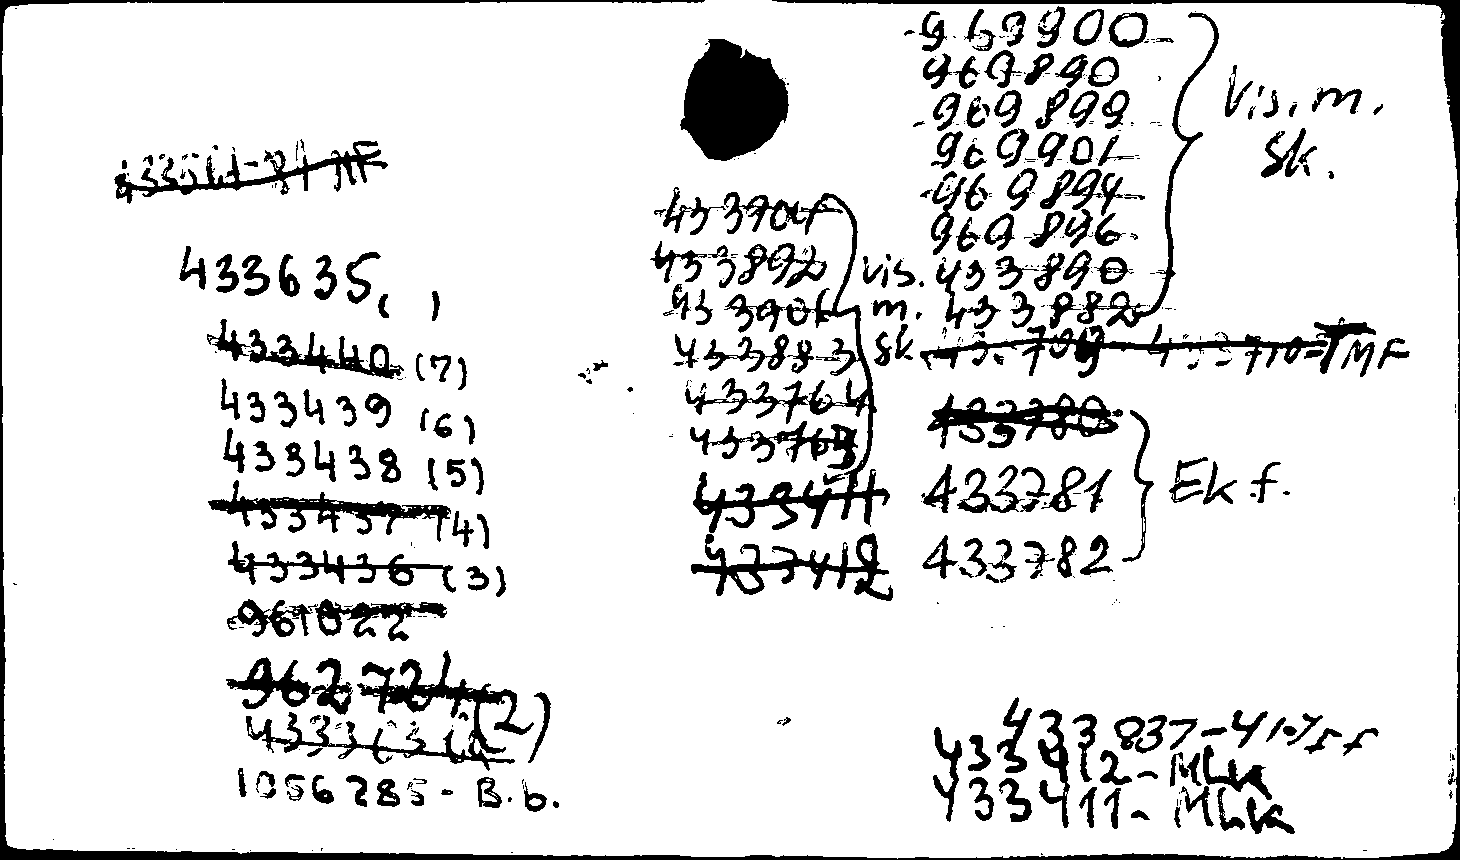 433635, ,
433440 (7)
433439 (6)
433438 (5)
433437 (4)
433436 (3)
961822
962724 (2)
1056285 - B.b.
433892
433901
433883
433764
433763
433411
433412
vis.
m.
sk.
969900
969890
969899
969901
969894
969896
433890
433882
Vis. m.
sk.
433710 - MF
433780
433781
433782
Ek.f.
433837-41
433412 - Mhk
433411 - Mhk